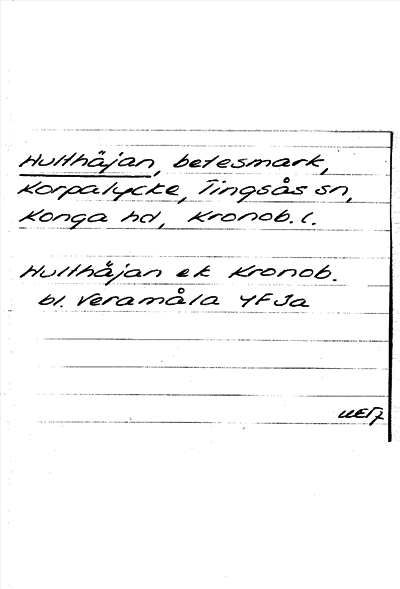 Hulthäjan, betesmark,
Korpalycke, Tingsås sn,
Konga hd, Kronob. l.
Hulthäjan ek Kronob.
bl. Veramåla 4F Ja